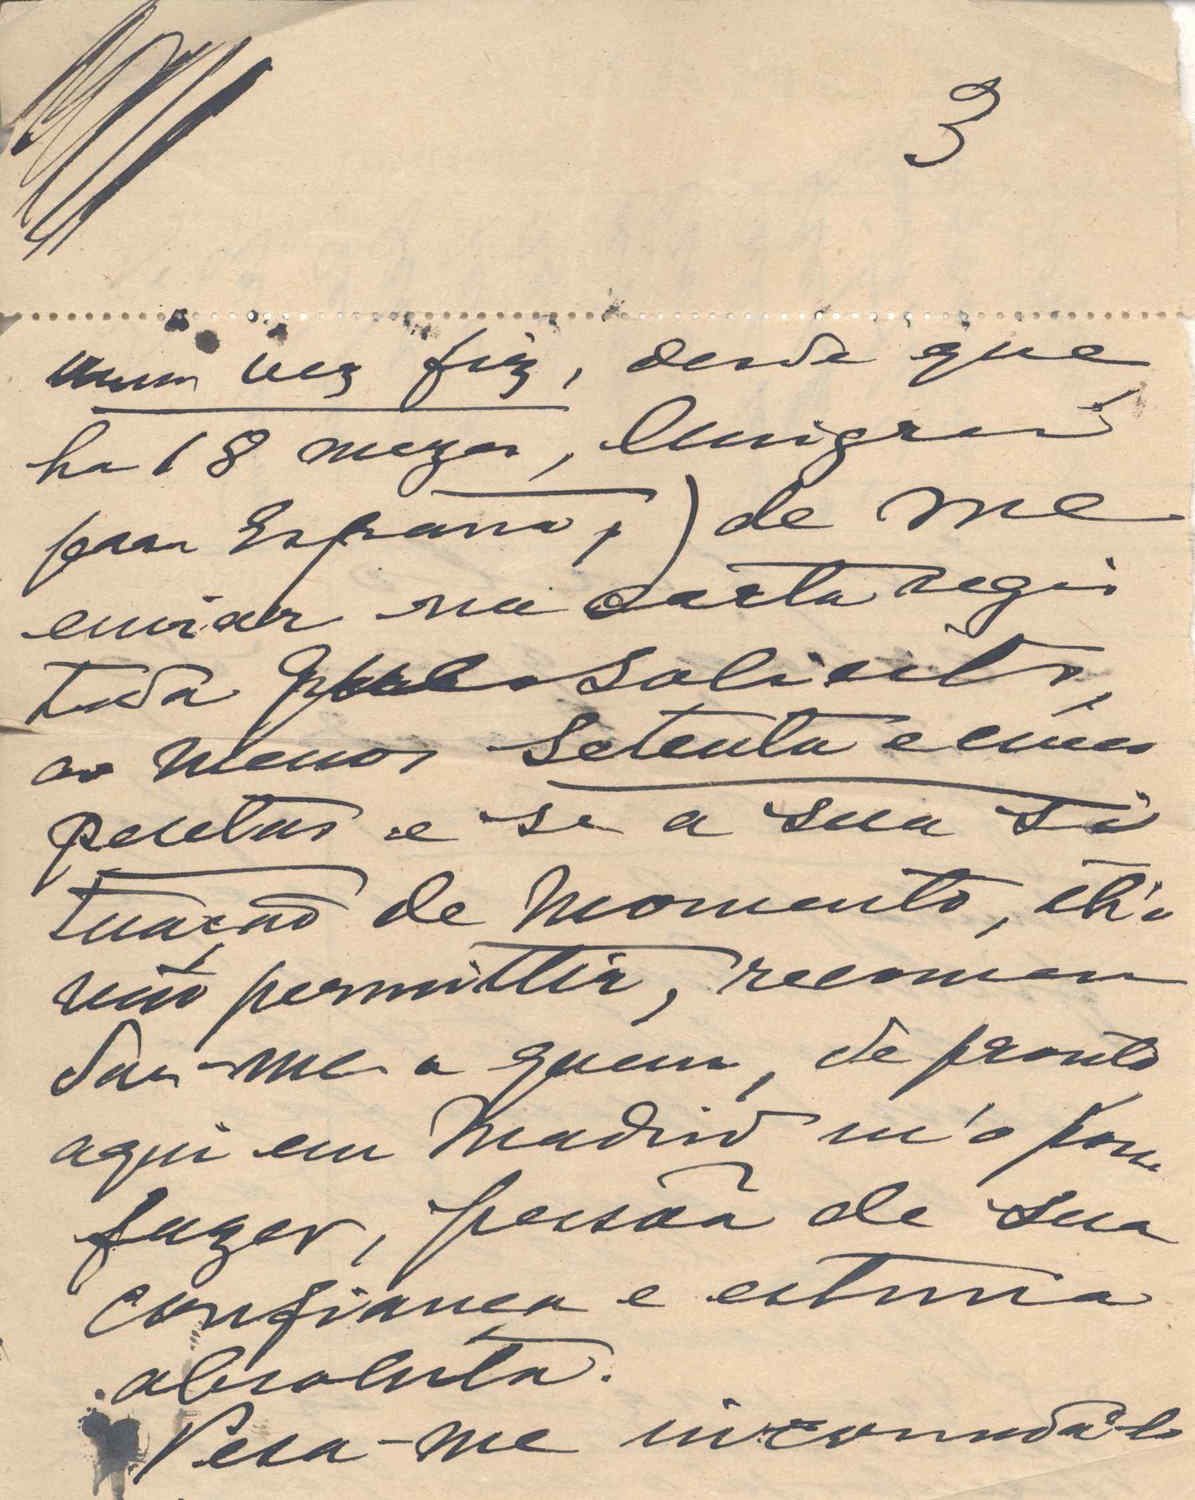 3
uma vez fiz, desde que
ha 18 mezes, Emigrei
para España,) de me
enviar na carta regis
tada que solicito,
ao menos setenta e cinco
pesetas e se a sua si
tuação de momento, lh'o
não permittir, recomen
dar-me a quem, de pronto
aqui em Madrid m'o possa
fazer, pessôa de sua
confiança e estima
absoluta.
Pesa-me incomodá-lo